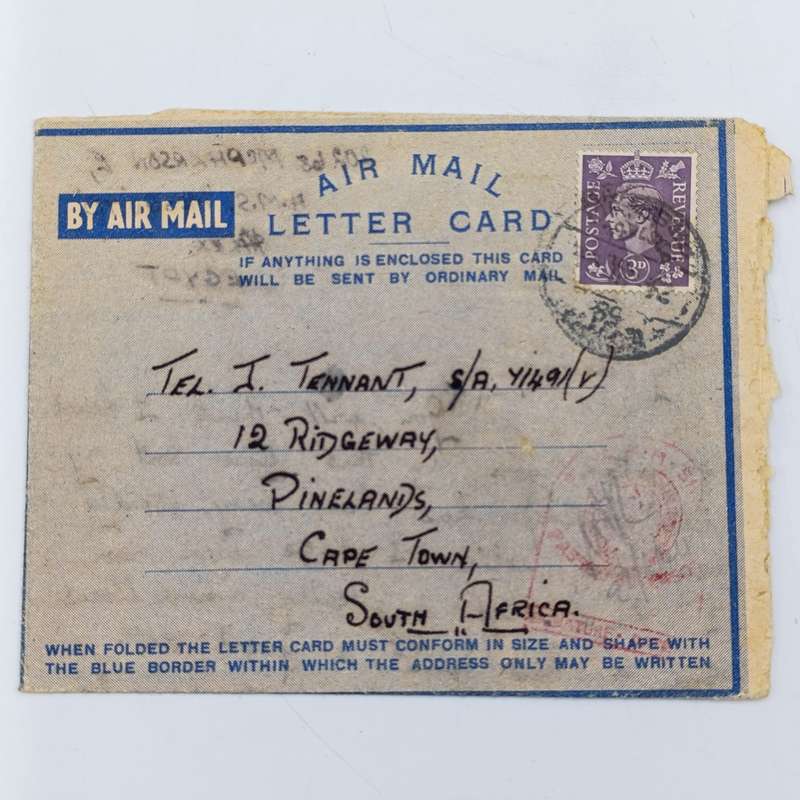 AIR MAIL
BY AIR MAIL
LETTER CARD
IF ANYTHING IS ENCLOSED THIS CARD
WILL BE SENT BY ORDINARY MAIL
POSTAGE REVENUE
3D
TEL. J. TENNANT, S/A. 71491(V)
12 RIDGEWAY,
PINELANDS,
CAPE TOWN,
SOUTH AFRICA.
WHEN FOLDED THE LETTER CARD MUST CONFORM IN SIZE AND SHAPE WITH
THE BLUE BORDER WITHIN WHICH THE ADDRESS ONLY MAY BE WRITTEN